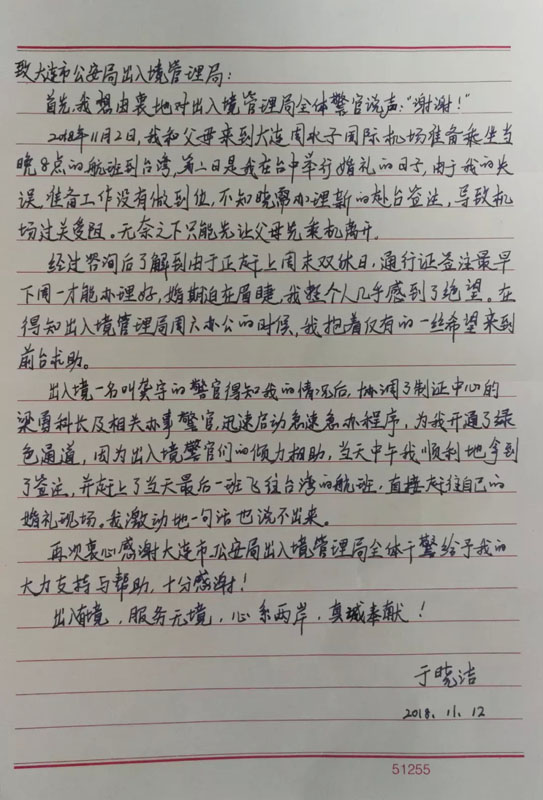 致大连市公安局出入境管理局：
首先，我想由衷地对出入境管理局全体警官说声：“谢谢！”
2018年11月2日，我和父母来到大连周水子国际机场准备乘坐当
晚8点的航班到台湾，第二日是我在台中举行婚礼的日子，由于我的失
误，准备工作没有做到位，不知晓需办理新的赴台签注，导致机
场过关受阻。无奈之下只能先让父母先乘机离开。
经过咨询后了解到由于正赶上周末双休日，通行证签注最早
下周一才能办理好，婚期迫在眉睫，我整个人几乎感到了绝望。在
得知出入境管理局周六办公的时候，我抱着仅有的一丝希望来到
前台求助。
出入境一名叫龚宇的警官得知我的情况后，协调了制证中心的
梁勇科长及相关办事警官，迅速启动急速急办程序，为我开通了绿
色通道，因为出入境警官们的倾力相助，当天中午我顺利地拿到
了签注，并赶上了当天最后一班飞往台湾的航班，直接赶往自己的
婚礼现场。我激动地一句话也说不出来。
再次衷心感谢大连市公安局出入境管理局全体干警给予我的
大力支持与帮助，十分感谢！
出入有境，服务无境，心系两岸，真诚奉献！
于晓洁
2018.11.12
51255